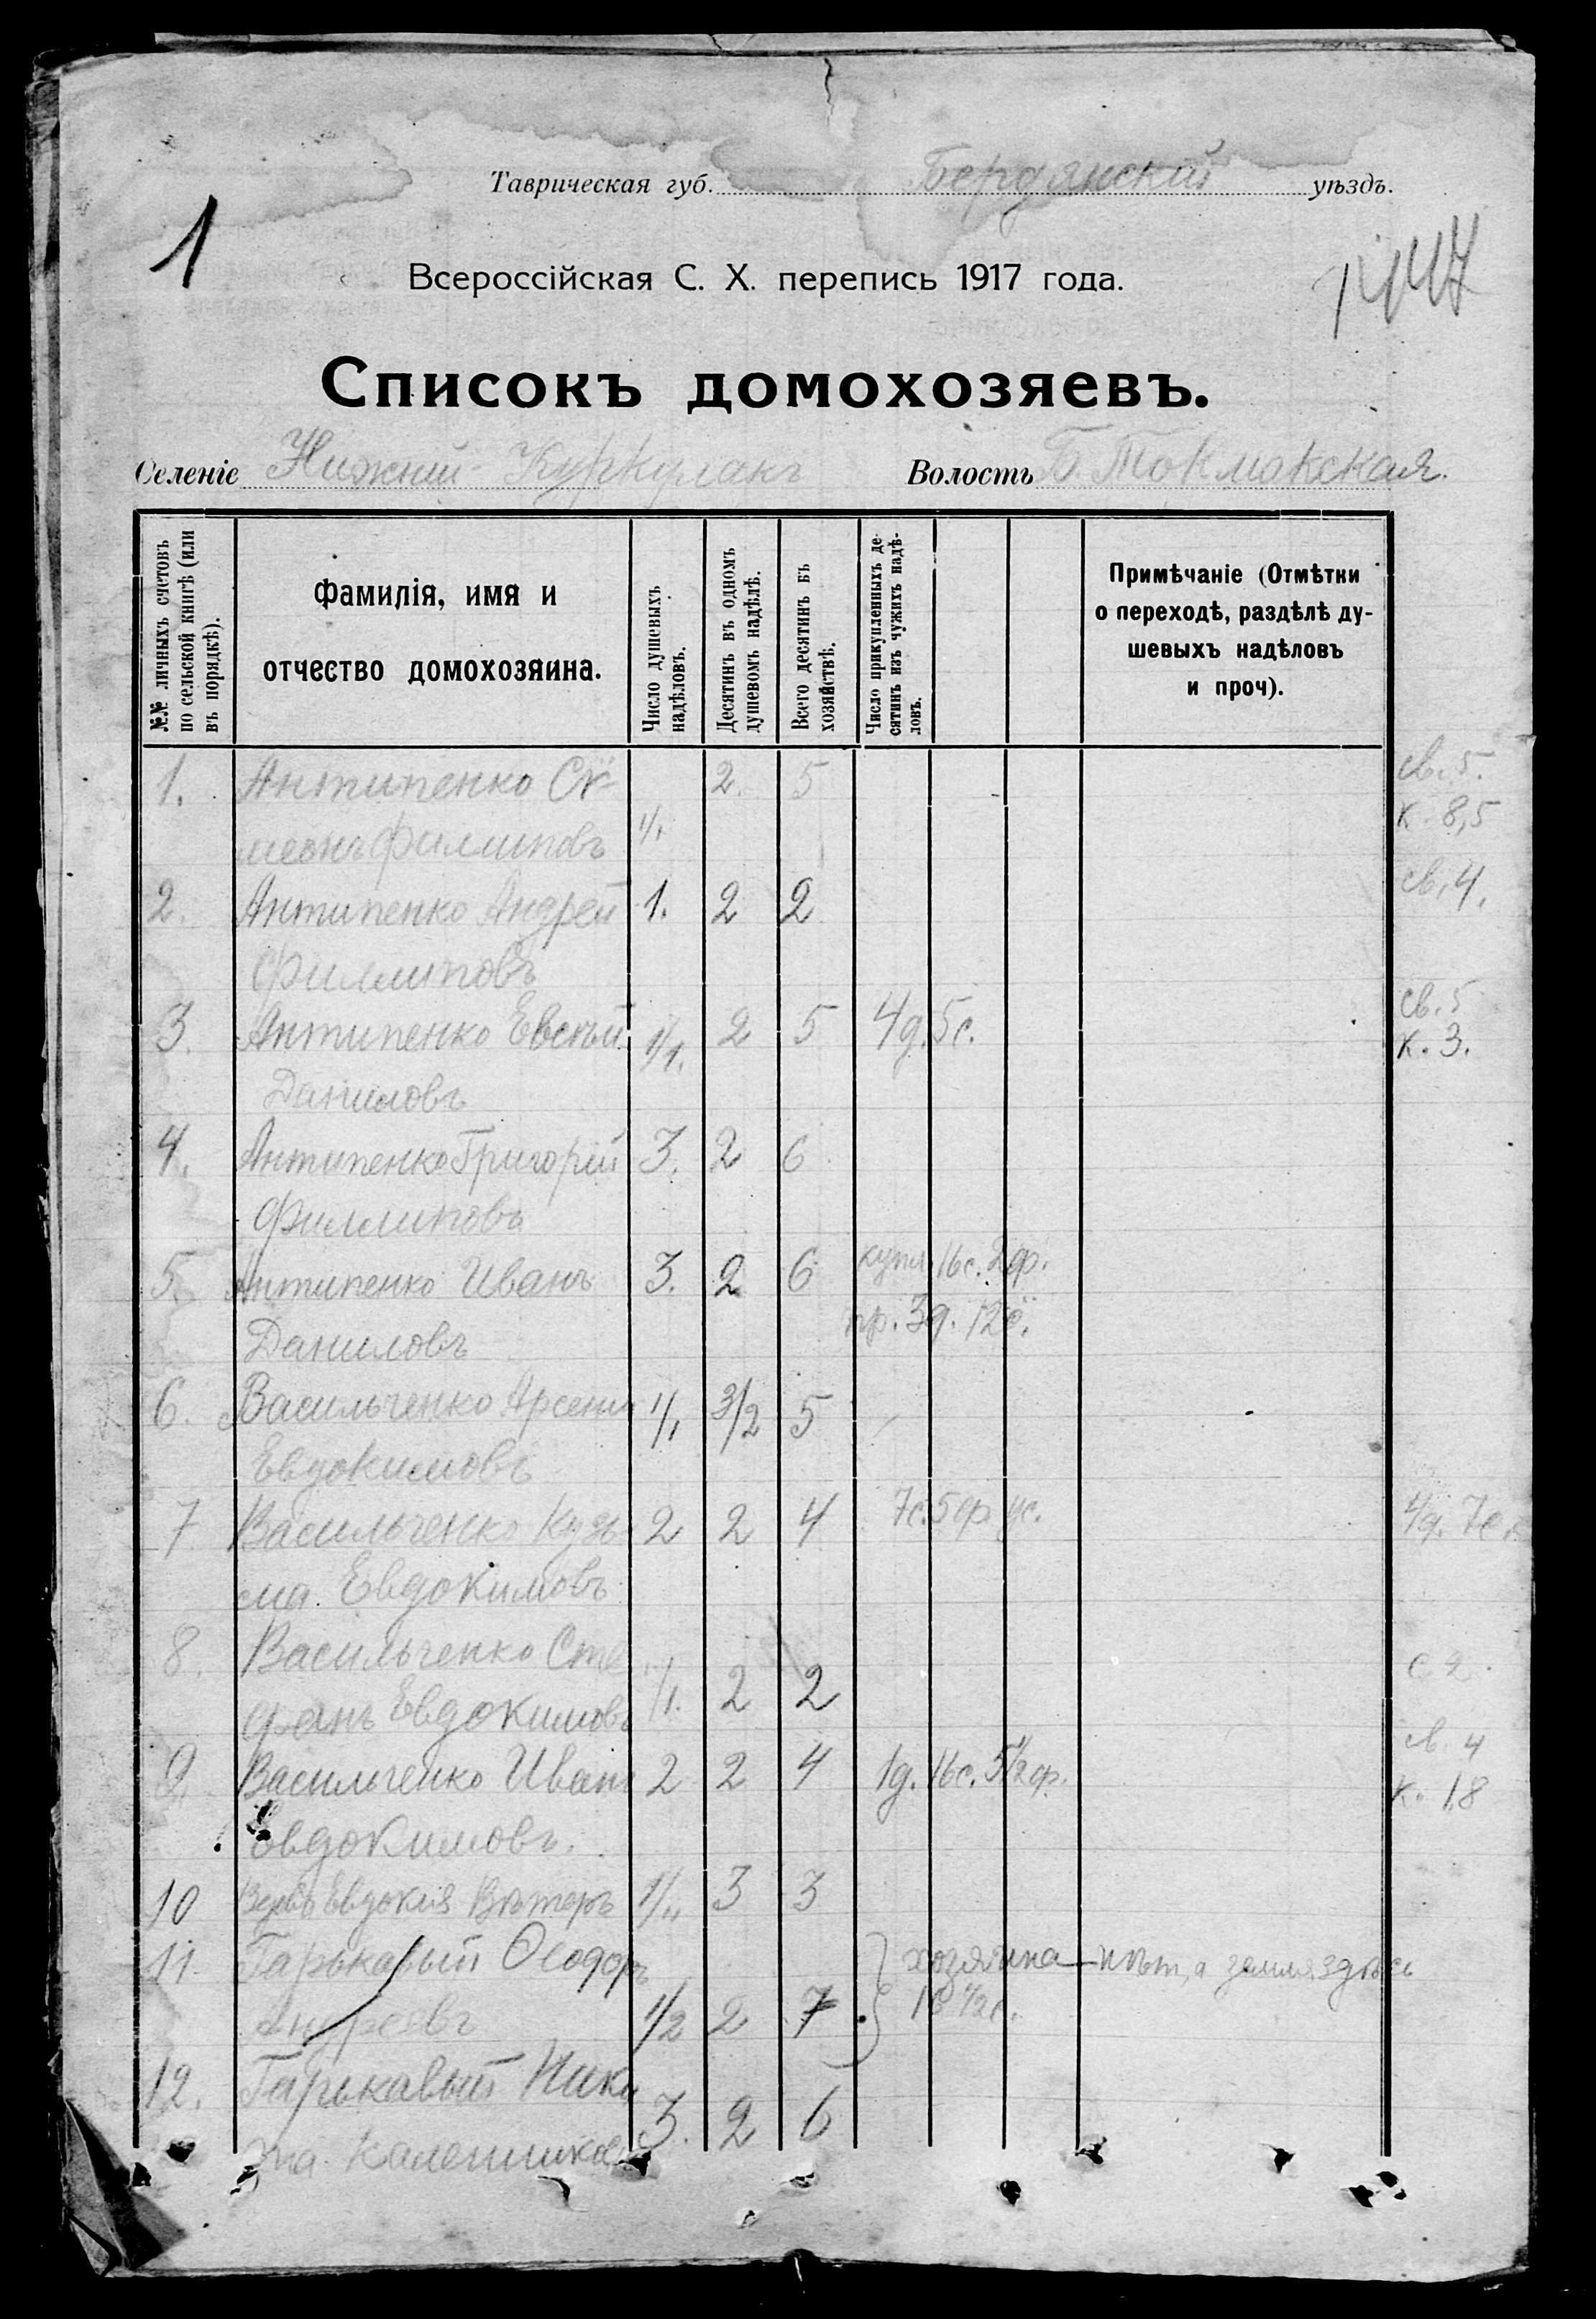 Таврическая губ. Бердянский уѣздъ.
1
Всероссійская С. Х. перепись 1917 года.
Списокъ домохозяевъ.
Селеніе Нижній Куркулакъ Волость Б. Токмакская.
№№ личныхъ счетовъ по сельской книгѣ (или въ порядкѣ).
Фамилія, имя и
отчество домохозяина.
Число душевыхъ надѣловъ.
Десятинъ въ одномъ душевомъ надѣлѣ.
Всего десятинъ въ хозяйствѣ.
Число прикупленныхъ десятинъ изъ чужихъ надѣловъ.
Примѣчаніе (Отмѣтки
о переходѣ, раздѣлѣ ду-
шевыхъ надѣловъ
и проч).
1. Антипенко Си- 2. 5 св. 5.
меонъ Филиповъ 1/1 к. 8,5
2. Антипенко Андрей 1. 2 2 св. 4.
Филлиповъ
3. Антипенко Евсѣй 1/1. 2 5 4д. 5с. св. 5
Даниловъ к. 3.
4. Антипенко Григорій 3. 2 6
Филлиповъ
5. Антипенко Иванъ 3. 2 6 купл. 16с. 2ф.
Даниловъ пр. 3д. 12с.
6. Васильченко Арсеній 1/1 3/2 5
Евдокимовъ
7 Васильченко Кузь 2 2 4 7с. 5ф 4д. 7с
ма Евдокимовъ
8. Васильченко Сте
фанъ Евдокимовъ /1. 2 2 с 2.
9. Васильченко Иванъ 2 2 4 1д. 16с. 5 1/2ф. св. 4
Евдокимовъ. к. 1,8
10 Вдова Евдокія 3 3
11. Гарькавый Ѳеодоръ хозяина нѣт, а земля здѣсь
Андреевъ 1/2 2 7
12. Гарькавый Ники
та 3. 2 6